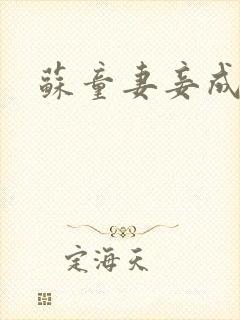 蘇童妻妾成
定海天